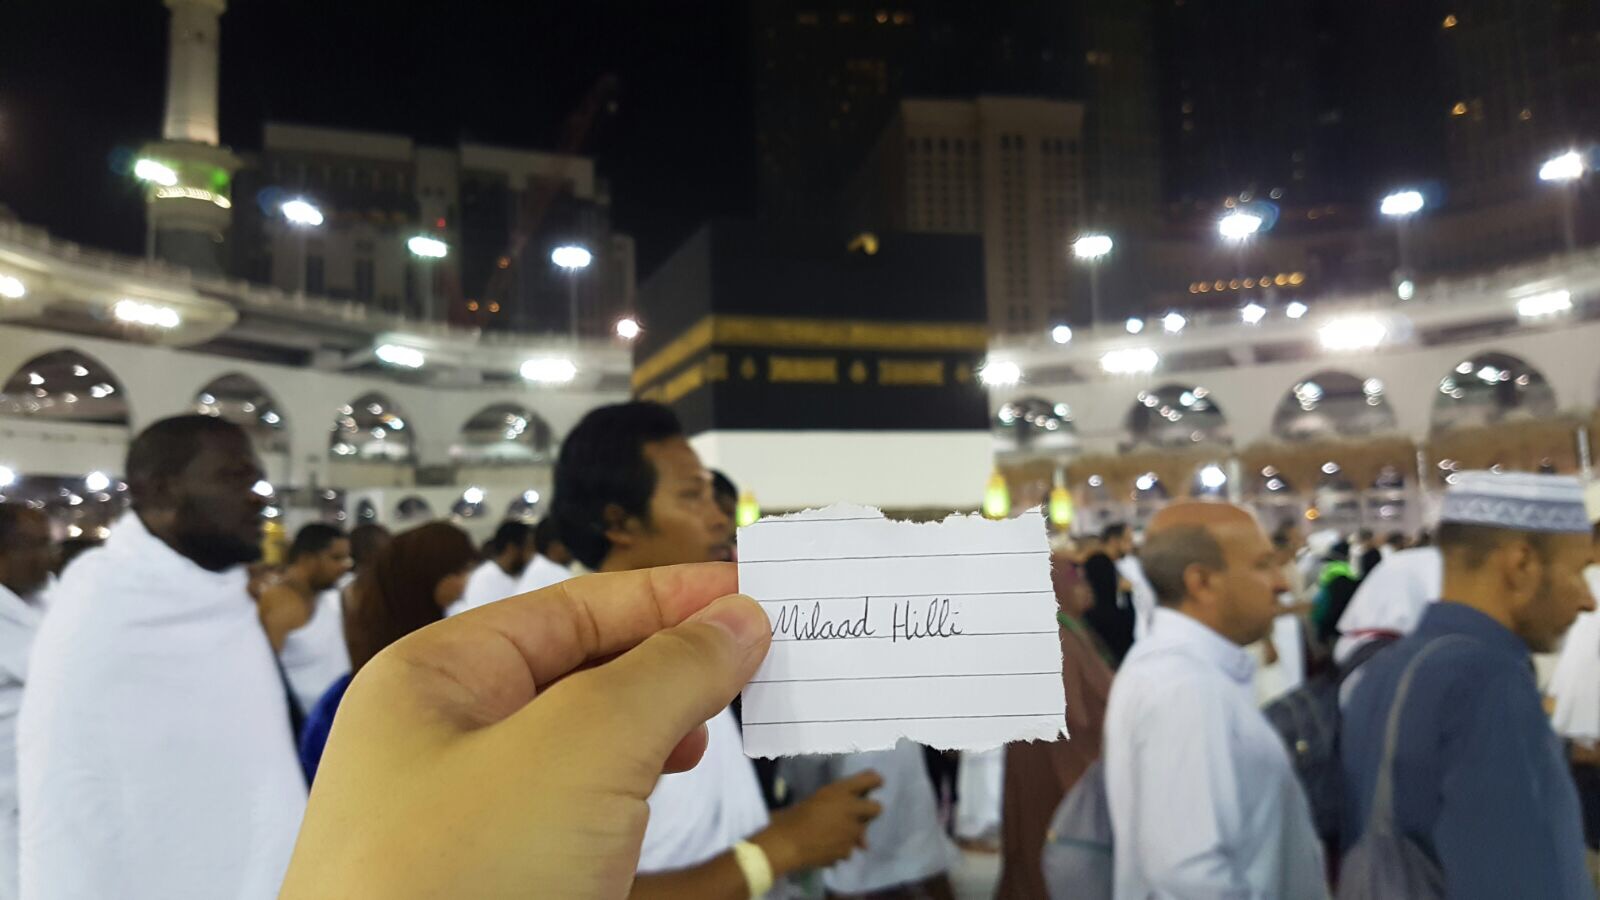 Milaad Hilli